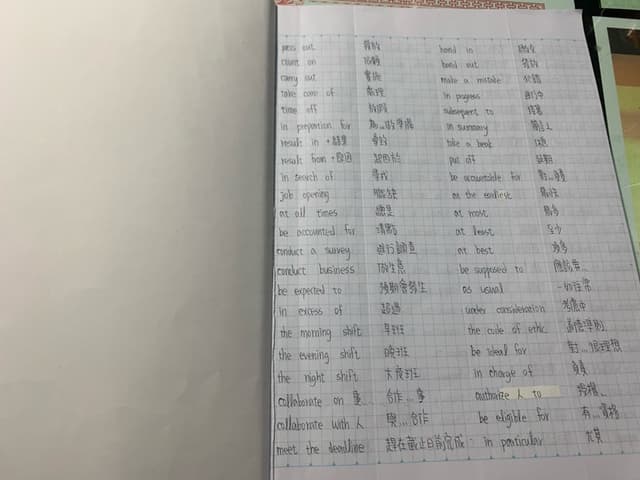 pass out 發放 hand in 繳交
count on 依賴 hand out 發放
carry out 實施 make a mistake 犯錯
take care of 處理 in progress 進行中
time off 放假 subsequent to 接著
in preparation for 為...做準備 in summary
result in +結果 導致 take a break 休息
result from +原因 起因於 put off 延期
in search of 尋找 be accountable for 對...負責
job opening 職缺 at the earliest 最快
at all times 總是 at most 最多
be accounted for at least 至少
conduct a survey 進行調查 at best 頂多
conduct business 做生意 be supposed to 應該要...
be expected to 預期會發生 as usual 一如往常
in excess of 超過 under consideration 考慮中
the morning shift 早班 the code of ethic 道德準則
the evening shift 晚班 be ideal for 對...很理想
the night shift 大夜班 in charge of 負責
collaborate on 事 合作...事 authorize 人 to 授權...
collaborate with 人 與...合作 be eligible for 有...資格
meet the deadline 趕在截止日前完成 in particular 尤其